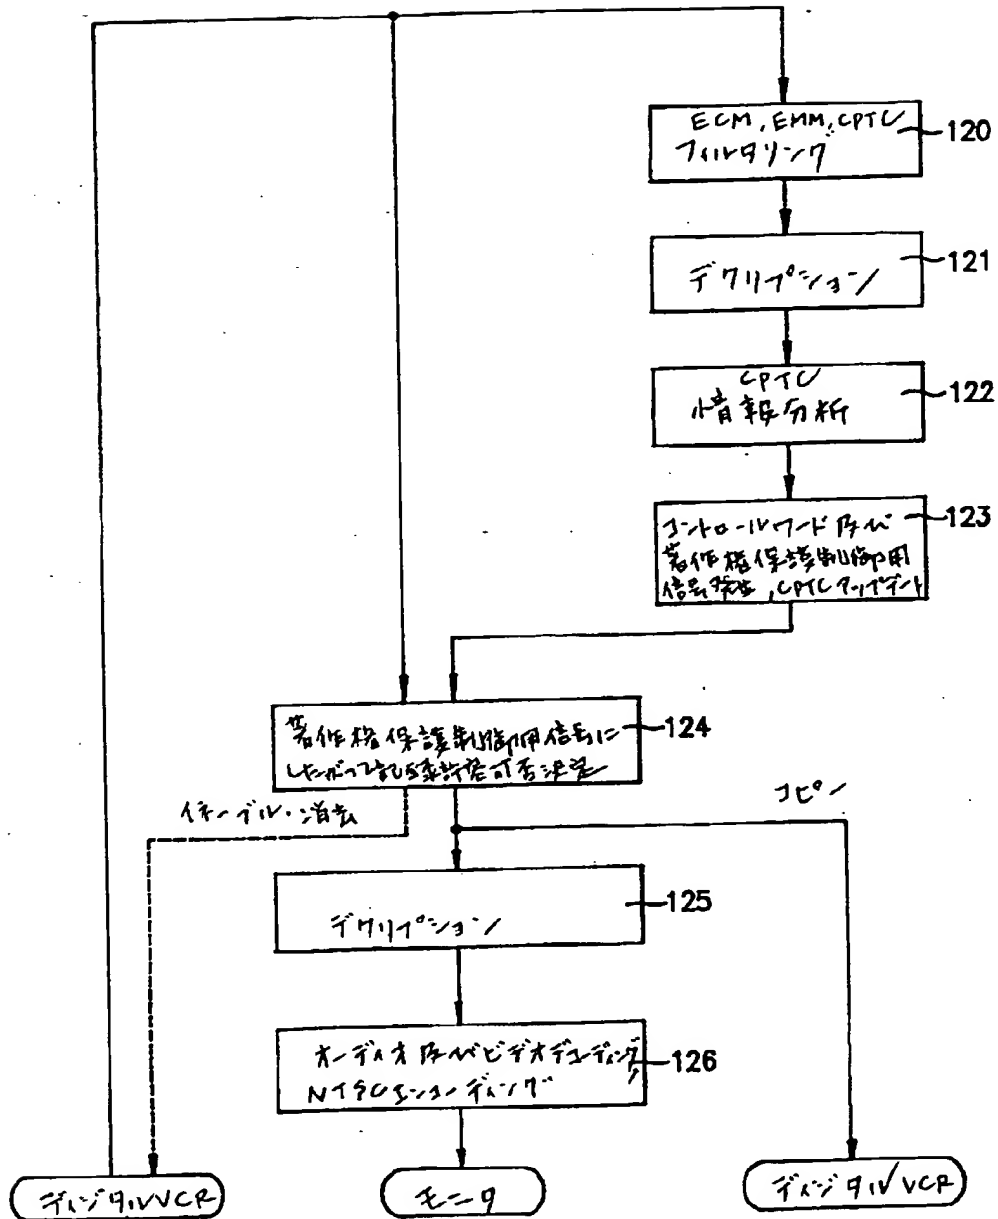 ECM, EMM, CPTC
フィルタリング
120
デクリプション
121
CPTC
情報分析
122
コントロールワード及び
著作権保護制御用
信号発生, CPTCアップデート
123
著作権保護制御用信号に
したがって記録許容可否決定
124
イネーブル・消去
コピー
デクリプション
125
オーディオ及びビデオデコーディング,
NTSCエンコーディング
126
ディジタルVCR
モニタ
ディジタルVCR